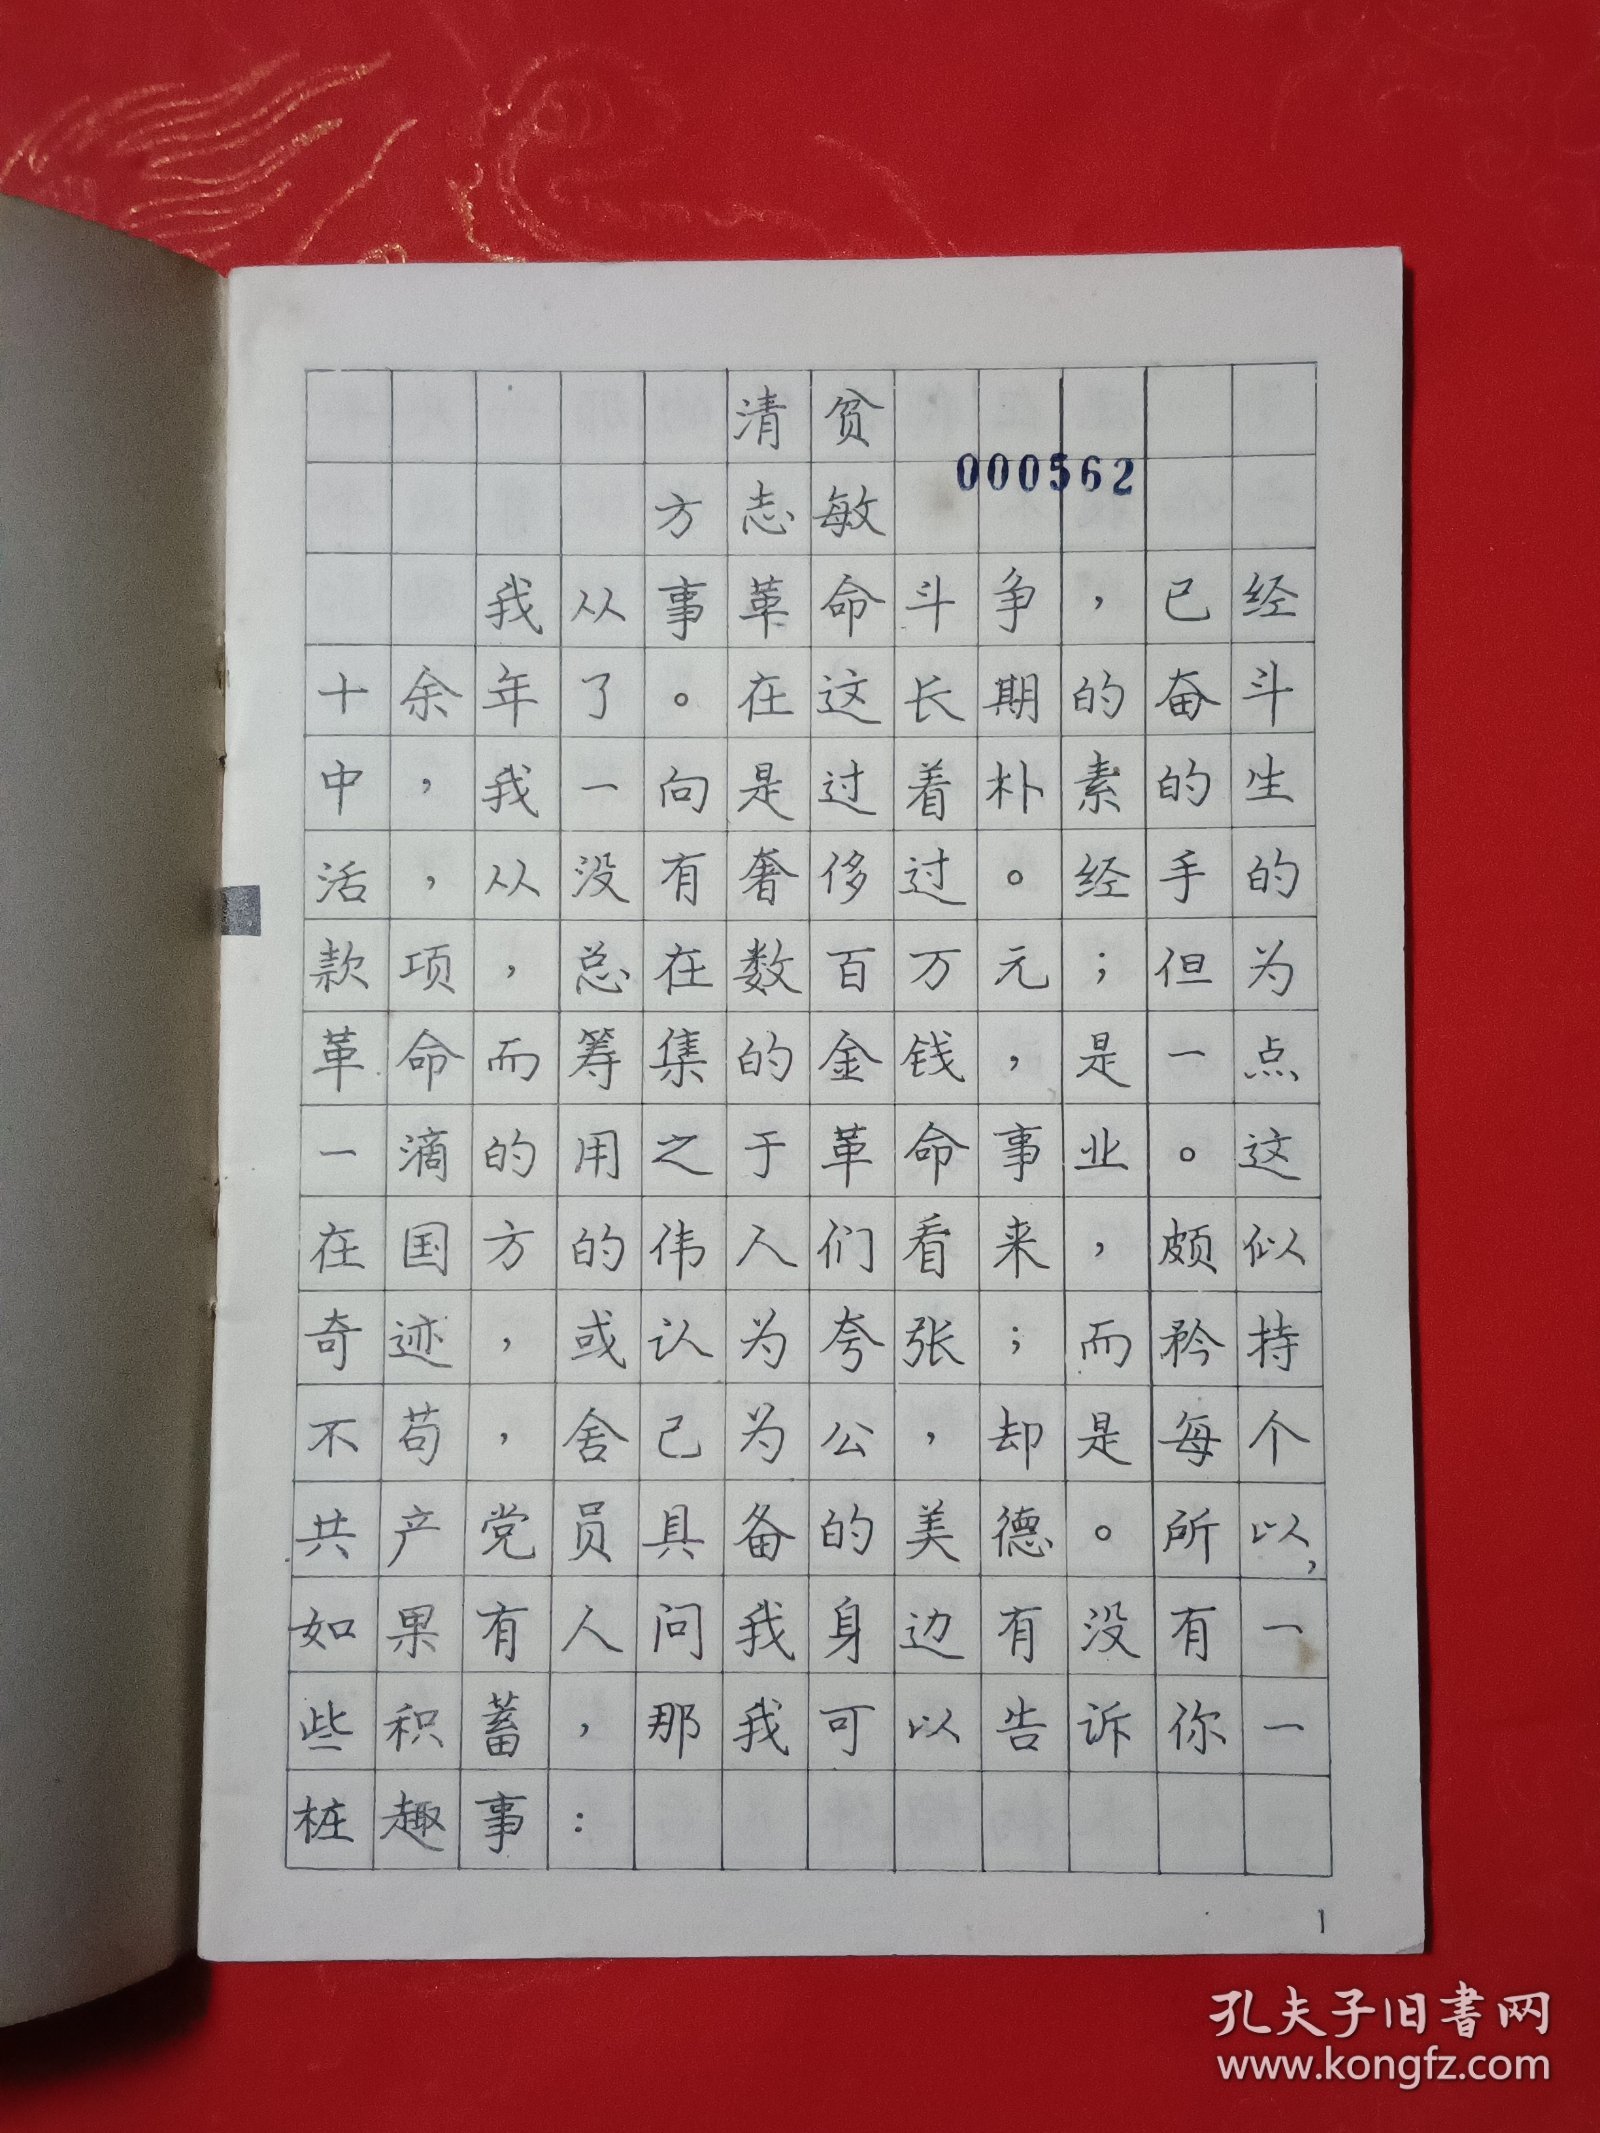 清贫
000562
方志敏
我从事革命斗争，已经
十余年了。在这长期的奋斗
中，我一向是过着朴素的生
活，从没有奢侈过。经手的
款项，总在数百万元；但为
革命而筹集的金钱，是一点
一滴的用之于革命事业。这
在国方的伟人们看来，颇似
奇迹，或认为夸张；而矜持
不苟，舍己为公，却是每个
共产党员具备的美德。所以，
如果有人问我身边有没有一
些积蓄，那我可以告诉你一
桩趣事：
1
孔夫子旧书网
www.kongfz.com